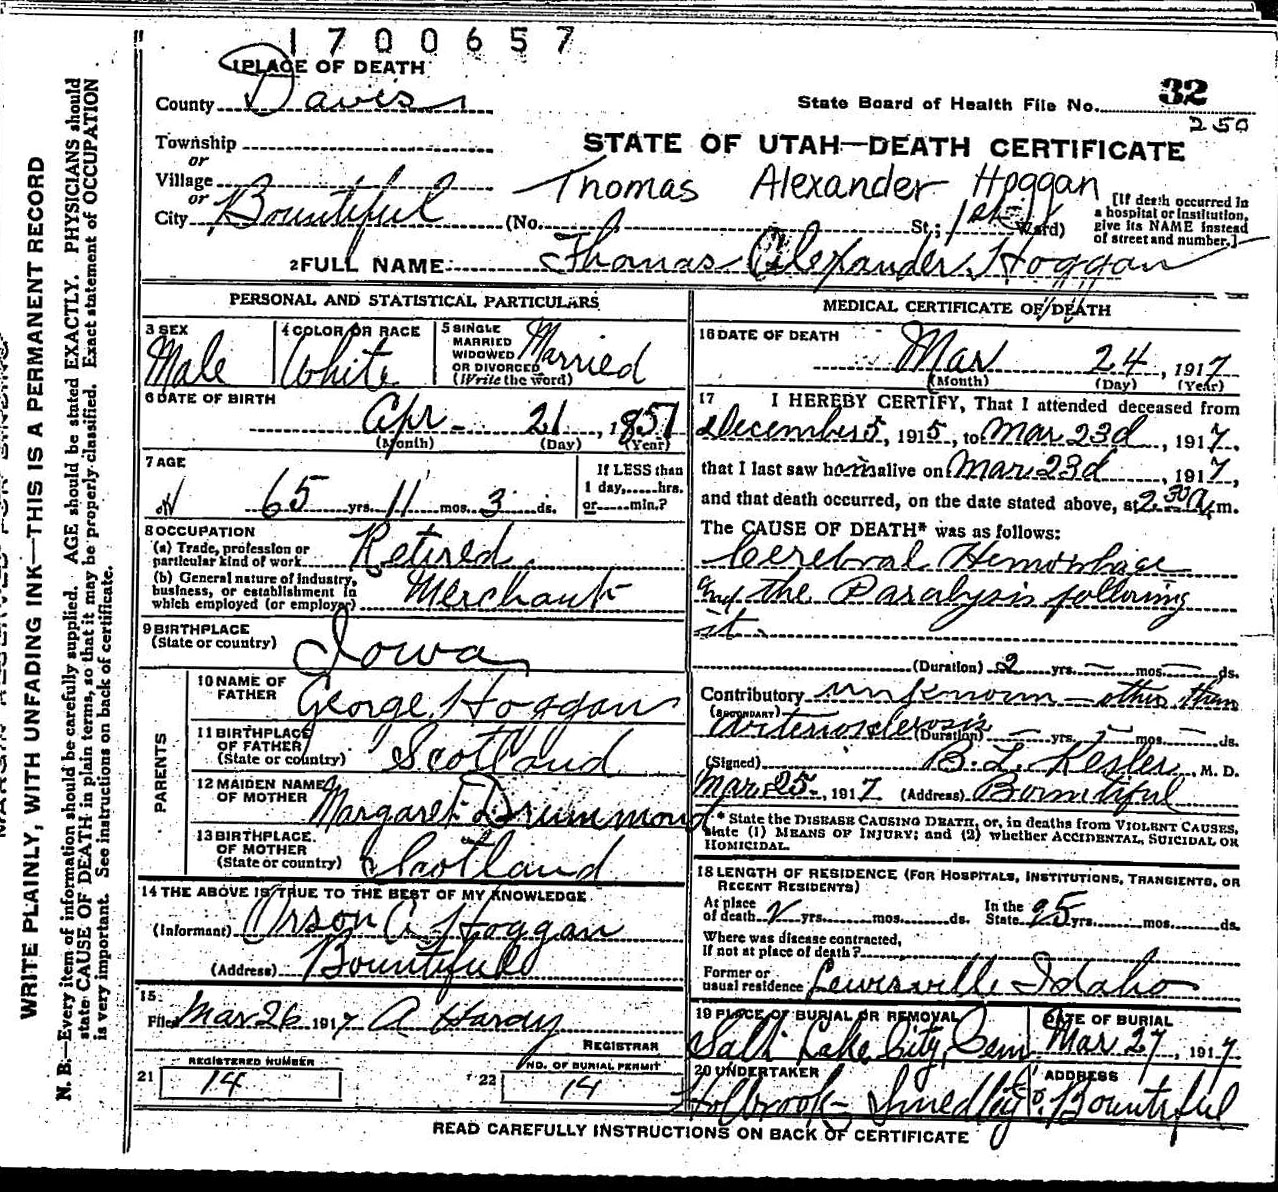 1700657
1 PLACE OF DEATH
County Davis
State Board of Health File No. 32
250
Township
or
Village
or
City Bountiful
STATE OF UTAH—DEATH CERTIFICATE
Thomas Alexander Hoggan
(No. St.; 1st Ward)
[If death occurred in
a hospital or institution,
give its NAME instead
of street and number.]
2 FULL NAME Thomas Alexander Hoggan
PERSONAL AND STATISTICAL PARTICULARS
3 SEX
Male
4 COLOR OR RACE
White
5 SINGLE
MARRIED
WIDOWED
OR DIVORCED
(Write the word)
Married
6 DATE OF BIRTH
Apr 21, 1851
(Month) (Day) (Year)
7 AGE
65 yrs. 11 mos. 3 ds.
If LESS than
1 day, hrs.
or min.?
8 OCCUPATION
(a) Trade, profession or
particular kind of work Retired
(b) General nature of industry,
business, or establishment in
which employed (or employer) Merchant
9 BIRTHPLACE
(State or country) Iowa
PARENTS
10 NAME OF
FATHER George Hoggan
11 BIRTHPLACE
OF FATHER
(State or country) Scotland
12 MAIDEN NAME
OF MOTHER Margaret Drummond
13 BIRTHPLACE
OF MOTHER
(State or country) Scotland
14 THE ABOVE IS TRUE TO THE BEST OF MY KNOWLEDGE
(Informant) Orson A. Hoggan
(Address) Bountiful
15
Filed Mar 26 1917 A Hardy
REGISTRAR
21 REGISTERED NUMBER
14
22 NO. OF BURIAL PERMIT
14
MEDICAL CERTIFICATE OF DEATH
16 DATE OF DEATH
Mar 24, 1917
(Month) (Day) (Year)
17 I HEREBY CERTIFY, That I attended deceased from
December 5, 1915, to Mar 23d, 1917,
that I last saw him alive on Mar 23d, 1917,
and that death occurred, on the date stated above, at 2.30 A.m.
The CAUSE OF DEATH* was as follows:
Cerebral Hemorrhage
and the Paralysis following
it.
(Duration) 2 yrs. — mos. — ds.
Contributory unknown — other than
(SECONDARY)
Arteriosclerosis
(Duration) — yrs. mos. — ds.
(Signed) B. L. Kesler, M. D.
Mar 25, 1917 (Address) Bountiful
* State the DISEASE CAUSING DEATH, or, in deaths from VIOLENT CAUSES,
state (1) MEANS OF INJURY; and (2) whether ACCIDENTAL, SUICIDAL OR
HOMICIDAL.
18 LENGTH OF RESIDENCE (FOR HOSPITALS, INSTITUTIONS, TRANSIENTS, OR
RECENT RESIDENTS)
At place
of death 2 yrs. mos. ds.
In the
State 25 yrs. mos. ds.
Where was disease contracted,
if not at place of death?
Former or
usual residence Lewisville Idaho
19 PLACE OF BURIAL OR REMOVAL
Salt Lake City Cem
DATE OF BURIAL
Mar 27, 1917
20 UNDERTAKER
Holbrook Smedley Co.
ADDRESS
Bountiful
READ CAREFULLY INSTRUCTIONS ON BACK OF CERTIFICATE
WRITE PLAINLY, WITH UNFADING INK—THIS IS A PERMANENT RECORD
N. B.—Every item of information should be carefully supplied. AGE should be stated EXACTLY. PHYSICIANS should
state CAUSE OF DEATH in plain terms, so that it may be properly classified. Exact statement of OCCUPATION
is very important. See instructions on back of certificate.